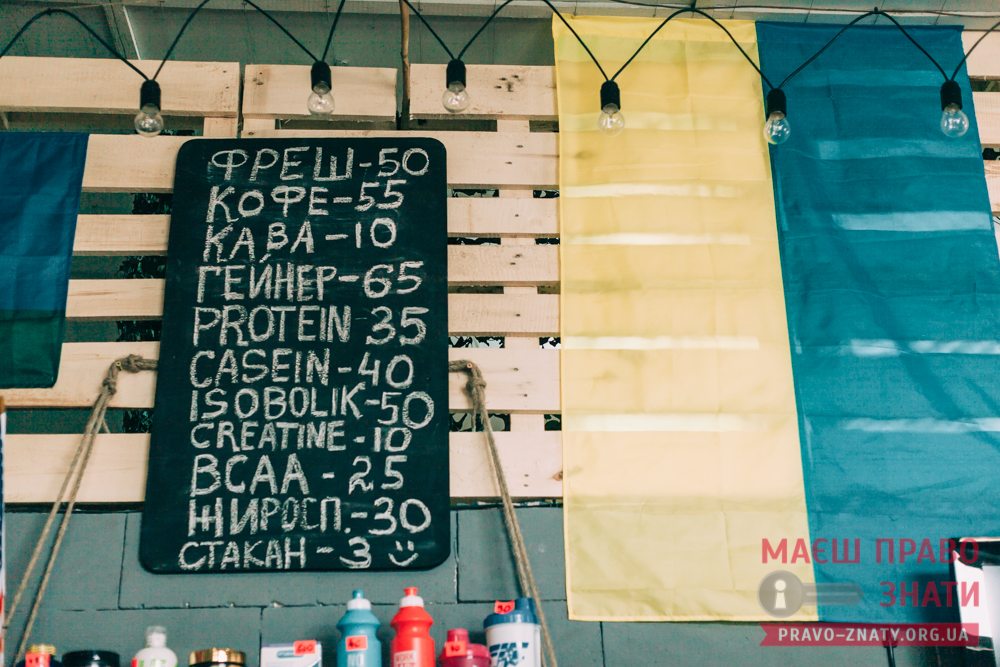 ФРЕШ-50
КОФЕ-55
КАВА-10
ГЕЙНЕР-65
PROTEIN 35
CASEIN-40
ISOBOLIK-50
CREATINE-10
BCAA-25
ЖИРОСП.-30
СТАКАН-3
МАЄШ ПРАВО
ЗНАТИ
PRAVO-ZNATY.ORG.UA